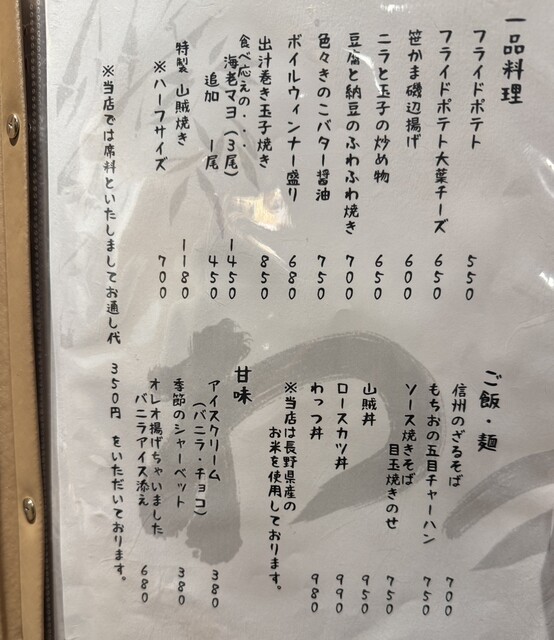 一品料理
フライドポテト 550
フライドポテト大葉チーズ 650
笹かま磯辺揚げ 600
ニラと玉子の炒め物 650
豆腐と納豆のふわふわ焼き 700
色々きのこバター醤油 750
ボイルウィンナー盛り 680
出汁巻き玉子焼き 850
食べ応えの・・・
海老マヨ(3尾) 1450
追加 1尾 450
特製 山賊焼き 1180
※ハーフサイズ 700
ご飯・麺
信州のざるそば 700
もちおの五目チャーハン 750
ソース焼きそば
目玉焼きのせ 750
山賊丼 950
ロースカツ丼 990
わっつ丼 980
※当店は長野県産の
お米を使用しております。
甘味
アイスクリーム
(バニラ・チョコ) 380
季節のシャーベット 380
オレオ揚げちゃいました
バニラアイス添え 680
※当店では席料といたしましてお通し代 350円 をいただいております。